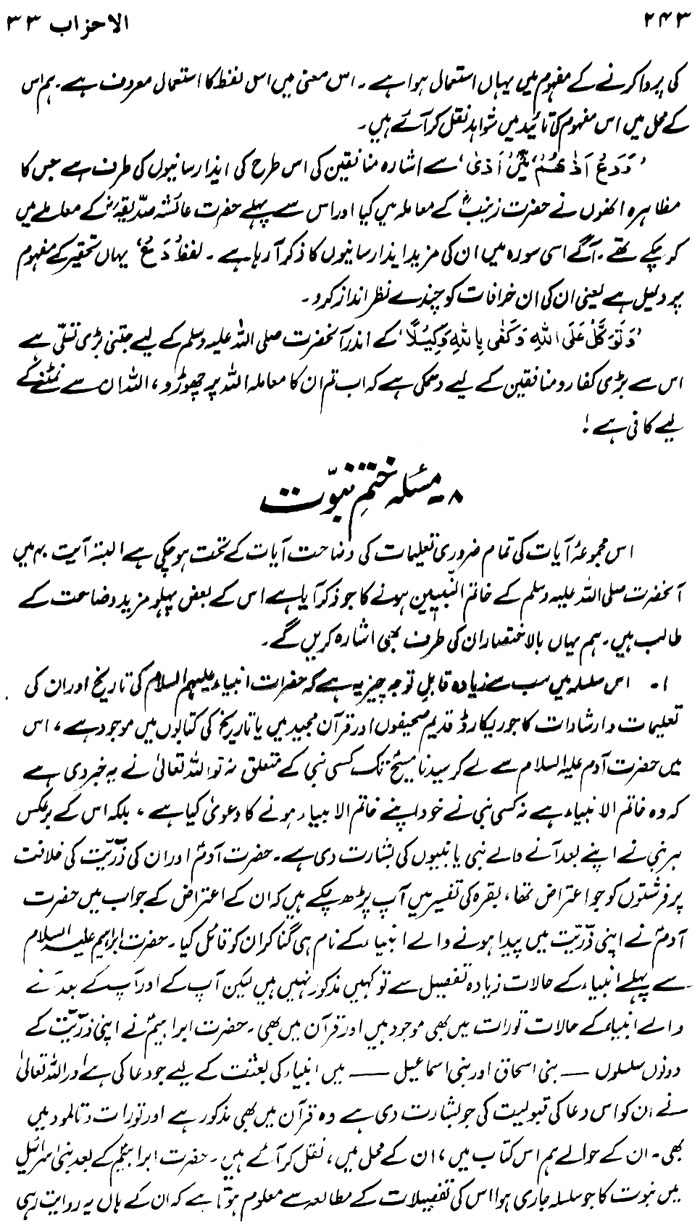 ۲۴۳
الاحزاب ۳۳
کی پروا کرنے کے مفہوم میں یہاں استعمال ہوا ہے۔ اس معنی میں اس لفظ کا استعمال معروف ہے۔ ہم اس
کے محل میں اس مفہوم کی تائید میں شواہد نقل کر آئے ہیں۔
’وَدَعْ اَذٰىهُمْ‘ ’مِنْ اَذٰی‘ سے اشارہ منافقین کی اس طرح کی ایذارسانیوں کی طرف ہے جس کا
مظاہرہ انھوں نے حضرت زینبؓ کے معاملہ میں کیا اور اس سے پہلے حضرت عائشہ صدیقہؓ کے معاملے میں
کر چکے تھے۔ آگے اسی سورہ میں ان کی مزید ایذارسانیوں کا ذکر آ رہا ہے۔ لفظ ’دَعْ‘ یہاں تحقیر کے مفہوم
پر دلیل ہے یعنی ان کی ان خرافات کو چندے نظر انداز کرو۔
’وَتَوَكَّلْ عَلَى اللّٰهِ وَكَفٰى بِاللّٰهِ وَكِيْلًا‘ کے اندر آنحضرت صلی اللہ علیہ وسلم کے لیے جتنی بڑی تسلی ہے
اس سے بڑی کفار و منافقین کے لیے دھمکی ہے کہ اب تم ان کا معاملہ اللہ پر چھوڑو، اللہ ان سے نمٹنے کے
لیے کافی ہے!
۸۔ مسئلہ ختمِ نبوّت
اس مجموعۂ آیات کی تمام ضروری تعلیمات کی وضاحت آیات کے تحت ہو چکی ہے البتہ آیت ۴۰ میں
آنحضرت صلی اللہ علیہ وسلم کے خاتم النّبیین ہونے کا جو ذکر آیا ہے اس کے بعض پہلو مزید وضاحت کے
طالب ہیں۔ ہم یہاں بالاختصار ان کی طرف بھی اشارہ کریں گے۔
۱۔ اس سلسلہ میں سب سے زیادہ قابلِ توجہ چیز یہ ہے کہ حضرات انبیاء علیہم السلام کی تاریخ اور ان کی
تعلیمات و ارشادات کا جو ریکارڈ قدیم صحیفوں اور قرآن مجید میں یا تاریخ کی کتابوں میں موجود ہے، اس
میں حضرت آدم علیہ السلام سے لے کر سیدنا مسیحؑ تک کسی نبی کے متعلق نہ تو اللہ تعالیٰ نے یہ خبر دی ہے
کہ وہ خاتم الانبیاء ہے نہ کسی نبی نے خود اپنے خاتم الانبیاء ہونے کا دعویٰ کیا ہے، بلکہ اس کے برعکس
ہر نبی نے اپنے بعد آنے والے نبی یا نبیوں کی بشارت دی ہے۔ حضرت آدمؑ اور ان کی ذرّیّت کی خلافت
پر فرشتوں کو جو اعتراض تھا، بقرہ کی تفسیر میں آپ پڑھ چکے ہیں کہ ان کے اعتراض کے جواب میں حضرت
آدمؑ نے اپنی ذرّیت میں پیدا ہونے والے انبیاء کے نام ہی گنا کر ان کو قائل کیا۔ حضرت ابراہیم علیہ السلام
سے پہلے انبیاء کے حالات زیادہ تفصیل سے تو کہیں مذکور نہیں ہیں لیکن آپ کے اور آپ کے بعد آنے
والے انبیاء کے حالات تورات میں بھی موجود ہیں اور قرآن میں بھی۔ حضرت ابراہیمؑ نے اپنی ذرّیّت کے
دونوں سلسلوں — بنی اسحاق اور بنی اسماعیل — میں انبیاء کی بعثت کے لیے جو دعا کی ہے اور اللہ تعالیٰ
نے ان کو اس دعا کی قبولیت کی جو بشارت دی ہے وہ قرآن میں بھی مذکور ہے اور تورات و تالمود میں
بھی۔ ان کے حوالے ہم اس کتاب میں، ان کے محل میں، نقل کر آئے ہیں۔ حضرت ابراہیمؑ کے بعد بنی اسرائیل
میں نبوت کا جو سلسلہ جاری ہوا اس کی تفصیلات کے مطالعہ سے معلوم ہوتا ہے کہ ان کے ہاں یہ روایت رہی